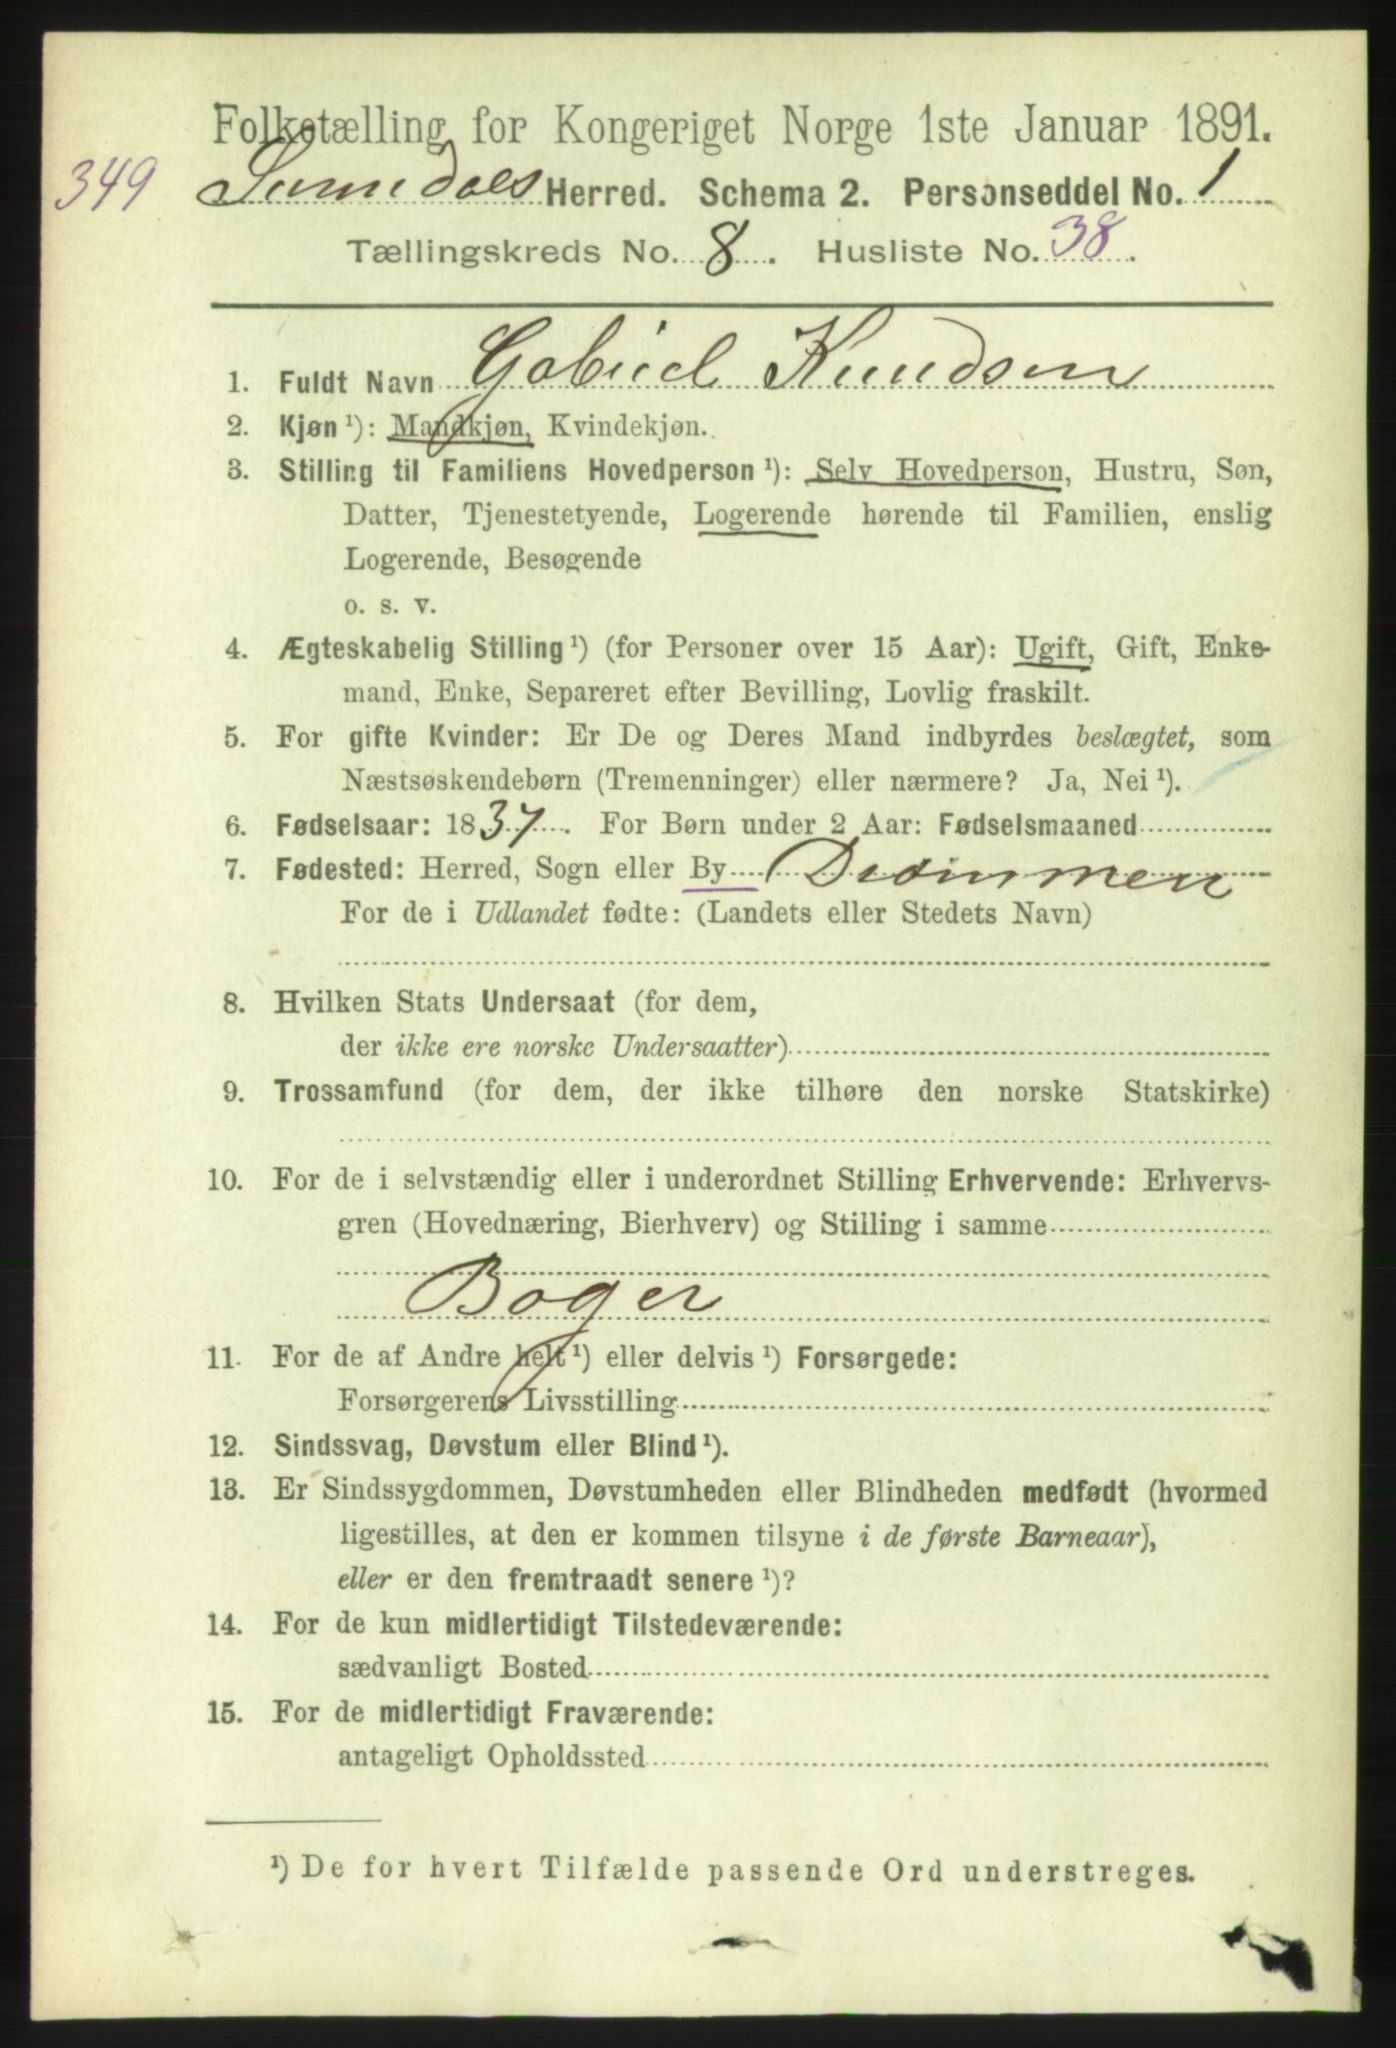 Folketælling for Kongeriget Norge 1ste Januar 1891.
349 Sunndals Herred. Schema 2. Personseddel No. 1
Tællingskreds No. 8. Husliste No. 38.
1. Fuldt Navn Gabriel Knudsen
2. Kjøn ¹): Mandkjøn, Kvindekjøn.
3. Stilling til Familiens Hovedperson ¹): Selv Hovedperson, Hustru, Søn,
Datter, Tjenestetyende, Logerende hørende til Familien, enslig
Logerende, Besøgende
o. s. v.
4. Ægteskabelig Stilling ¹) (for Personer over 15 Aar): Ugift, Gift, Enke-
mand, Enke, Separeret efter Bevilling, Lovlig fraskilt.
5. For gifte Kvinder: Er De og Deres Mand indbyrdes beslægtet, som
Næstsøskendebørn (Tremenninger) eller nærmere? Ja, Nei ¹).
6. Fødselsaar: 1837. For Børn under 2 Aar: Fødselsmaaned
7. Fødested: Herred, Sogn eller By Drammen
For de i Udlandet fødte: (Landets eller Stedets Navn)
8. Hvilken Stats Undersaat (for dem,
der ikke ere norske Undersaatter)
9. Trossamfund (for dem, der ikke tilhøre den norske Statskirke)
10. For de i selvstændig eller i underordnet Stilling Erhvervende: Erhvervs-
gren (Hovednæring, Bierhverv) og Stilling i samme
Bager
11. For de af Andre helt ¹) eller delvis ¹) Forsørgede:
Forsørgerens Livsstilling
12. Sindssvag, Døvstum eller Blind ¹).
13. Er Sindssygdommen, Døvstumheden eller Blindheden medfødt (hvormed
ligestilles, at den er kommen tilsyne i de første Barneaar),
eller er den fremtraadt senere ¹)?
14. For de kun midlertidigt Tilstedeværende:
sædvanligt Bosted
15. For de midlertidigt Fraværende:
antageligt Opholdssted
¹) De for hvert Tilfælde passende Ord understreges.